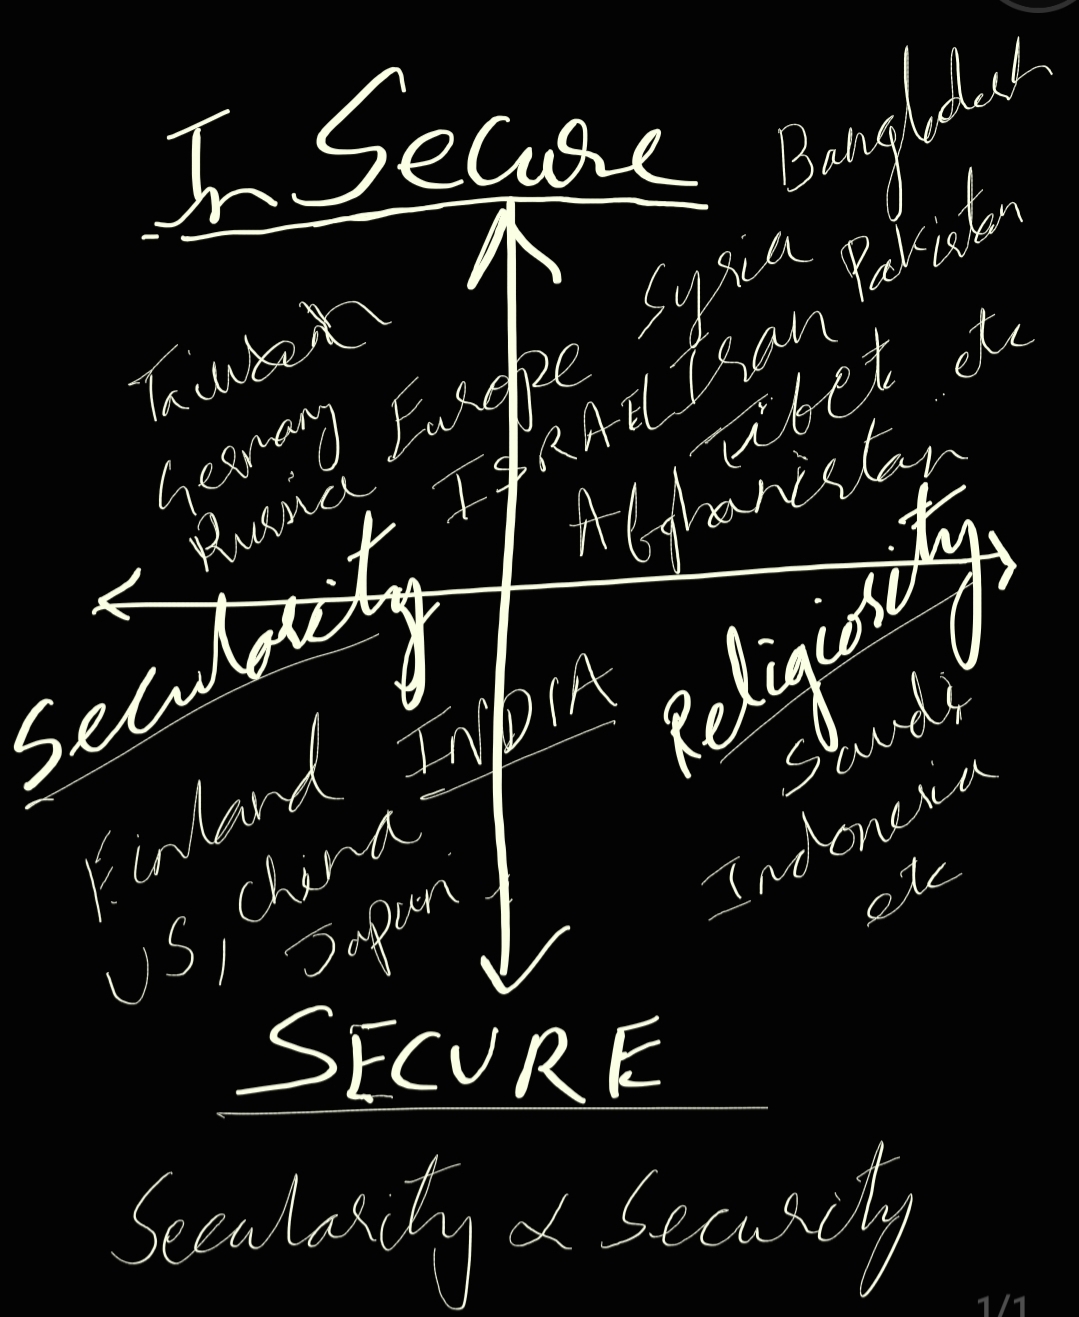 InSecure
Bangladesh
Syria Pakistan
Taiwan
Europe Iran etc
Germany ISRAEL Tibet
Russia Afghanistan
Secularity Religiosity
INDIA
Finland Saudi
US, China Indonesia
Japan etc
SECURE
Secularity ∝ Security
1/1